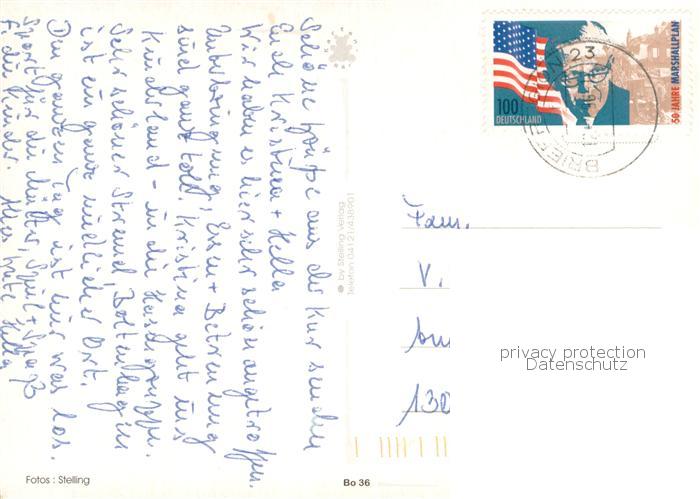 Schöne Grüße aus der Kur senden
Euch Kristina + Hella
Wir haben es hier sehr schön angetroffen.
Unterbringung, Essen + Betreuung
sind ganz toll. Kristina geht ins
Kinderland - in die Hasengruppe.
Sehr schöner Strand, Boltenhagen
ist ein ganz niedlicher Ort.
Den ganzen Tag ist hier was los.
Sport für die Mütter, Spiel + Spaß
f. die Kinder. Alles Gute Hella
Fotos : Stelling
Bo 36
© by Stelling Verlag
Telefon 04121/438901
100
DEUTSCHLAND
50 JAHRE MARSHALLPLAN
BRIEF
23
Fam.
V.
130
privacy protection
Datenschutz